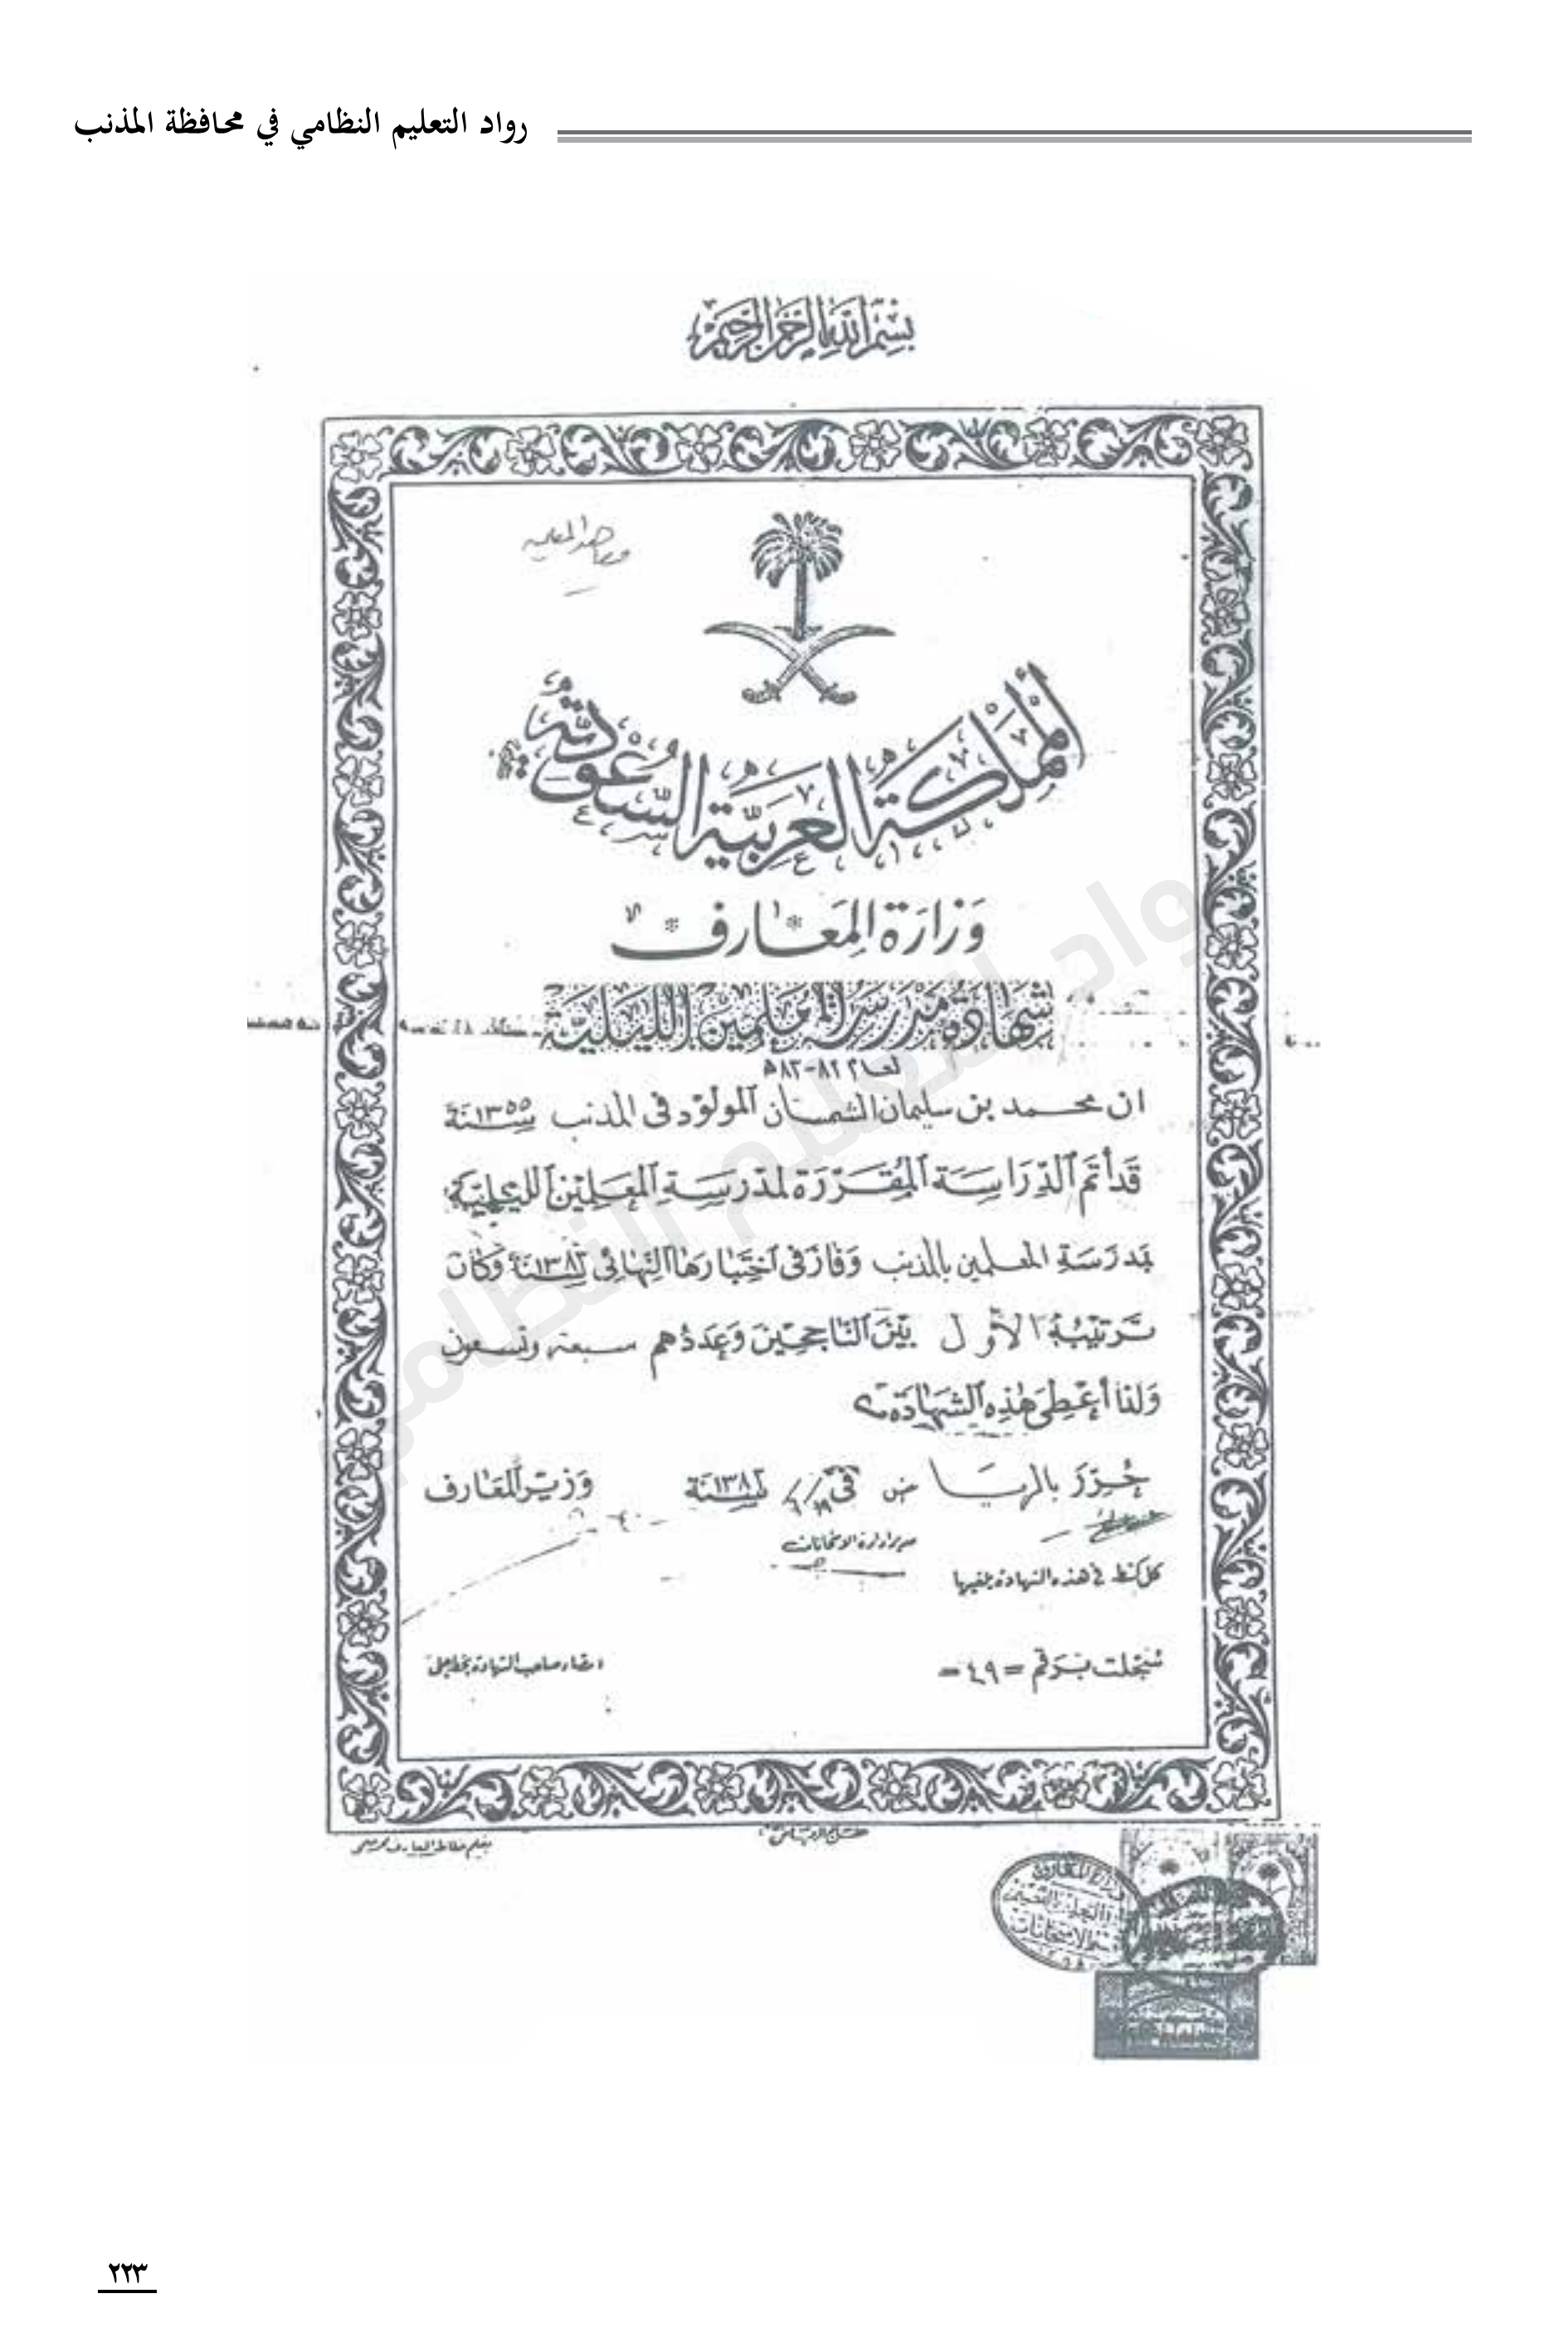 رواد التعليم النظامي في محافظة المذنب
بسم الله الرحمن الرحيم
معاهد المعلمين
المملكة العربية السعودية
وزارة المعارف
شهادة مدرسة المعلمين الليلية
لعام ٨٢-٨٣ھ
ان محمد بن سليمان الشمسان المولود في المذنب سنة ١٣٥٥
قد أتم الدراسة المقررة لمدرسة المعلمين الليلية
بمدرسة المعلمين بالمذنب وفاز في اختبارها النهائي لسنة ١٣٨٣ وكان
ترتيبه الأول بين الناجحين وعددهم سبعة وتسعون
ولذا أعطي هذه الشهادة
حرر بالرياض في سنة ١٣٨ وزير المعارف
مدير ادارة الامتحانات
كل كشط في هذه الشهادة يلغيها
سجلت برقم = ٤٩ =
امضاء صاحب الشهادة بخط جلي
رواد التعليم النظامي
٢٢٣